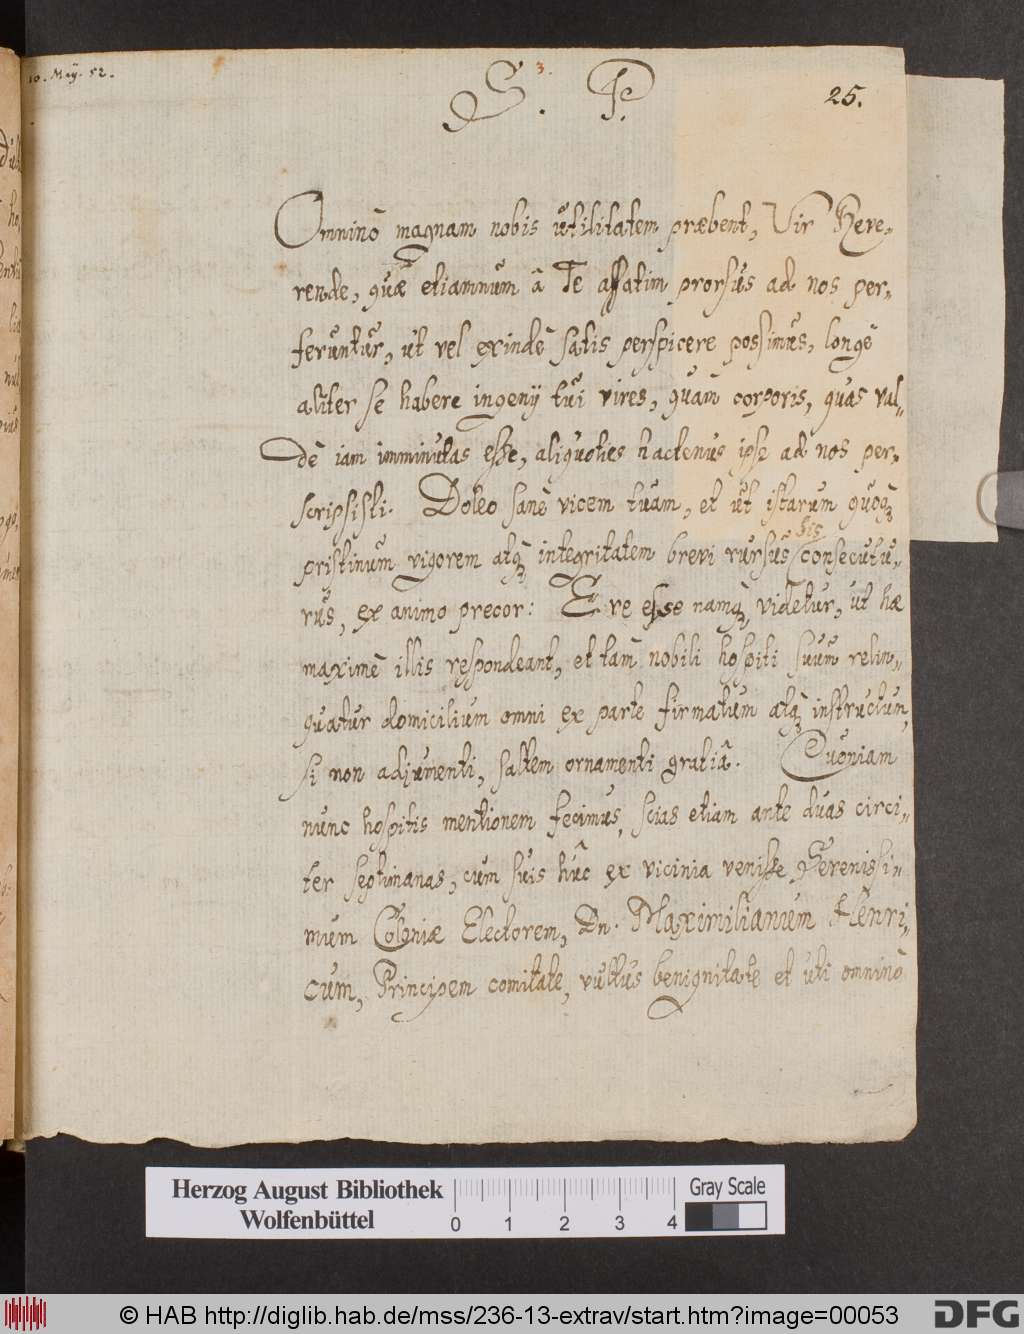 10. Maij. 52.
3.
S. P.
25.
Omninò magnam nobis ùtilitatem præbent, Vir Reve,,
rende, quæ etiamnùm â Te affatim prorsùs ad nos per,,
ferùntùr, ùt vel exindè satis perspicere possimùs, longè
aliter se habere ingenij tùi vires, quàm corporis, quas val,,
dè iam imminùtas esse, aliquoties hactenus ipse ad nos per,,
scripsisti. Doleo sanè vicem tùam, et ùt istarum quoq;
his
pristinùm vigorem atq; integritatem brevi rùrsùs consecùtù,,
rùs, ex animo precor: E re esse namq; videtùr, ùt hæ
maximè illis respondeant, et tàm nobili hospiti sùùm relin,,
quatùr domicilium omni ex parte firmatùm atq; instructùm,
si non adjùmenti, saltem ornamenti gratiâ. Qùoniam
nùnc hospitis mentionem fecimùs, scias etiam ante dùas circi,,
ter septimanas, cùm sùis hùc ex vicinia venisse Serenissi,,
mùm Coloniæ Electorem, Dn. Maximilianùm Henri,,
cùm, Principem comitate, vùltùs benignitate et ùti omninò
Herzog August Bibliothek
Wolfenbüttel
0 1 2 3 4
Gray Scale
© HAB http://diglib.hab.de/mss/236-13-extrav/start.htm?image=00053
DFG